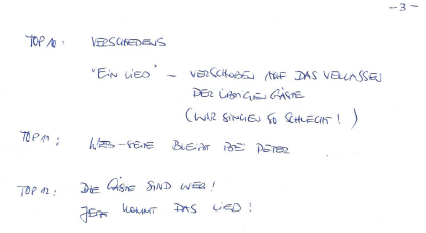 -3-
TOP 10: VERSCHIEDENS
"EIN LIED" - VERSCHOBEN AUF DAS VERLASSEN
DER ÜBRIGEN GÄSTE
(WIR SINGEN SO SCHLECHT!)
TOP 11: WEB-SEITE BLEIBT BEI PETER
TOP 12: DIE GÄSTE SIND WEG!
JETZT KOMMT DAS LIED!